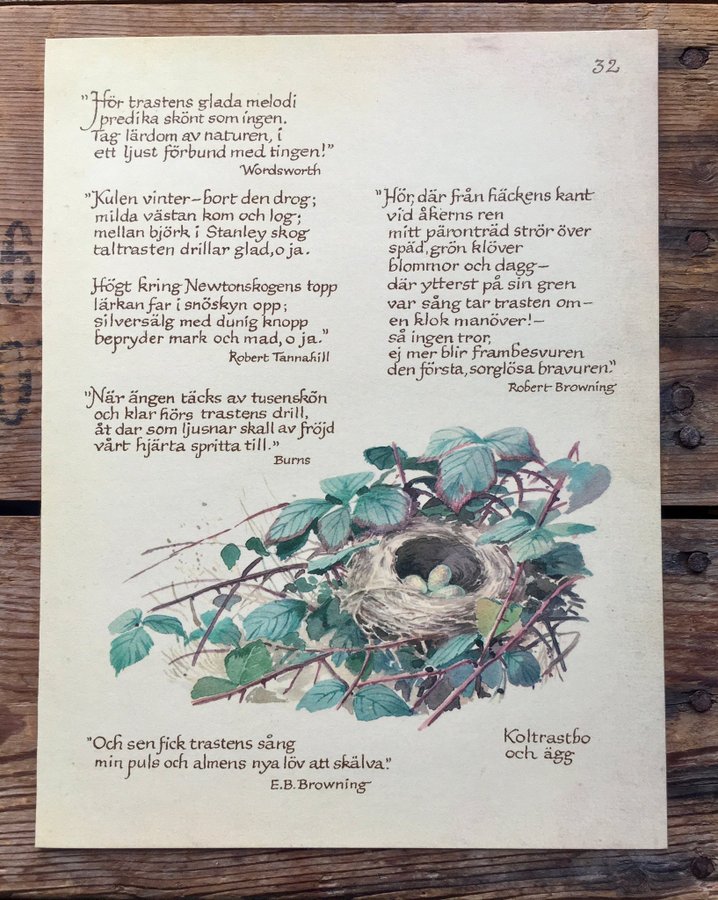 32
"Hör trastens glada melodi
predika skönt som ingen.
Tag lärdom av naturen, i
ett ljust förbund med tingen!"
Wordsworth
"Kulen vinter-bort den drog;
milda västan kom och log;
mellan björk i Stanley skog
taltrasten drillar glad, o ja.
Högt kring Newtonskogens topp
lärkan far i snöskyn opp;
silversälg med dunig knopp
bepryder mark och mad, o ja."
Robert Tannahill
"När ängen täcks av tusenskön
och klar hörs trastens drill,
åt dar som ljusnar skall av fröjd
vårt hjärta spritta till."
Burns
"Hör, där från häckens kant
vid åkerns ren
mitt päronträd strör över
späd, grön klöver
blommor och dagg-
där ytterst på sin gren
var sång tar trasten om-
en klok manöver!-
så ingen tror,
ej mer blir frambesvuren
den första, sorglösa bravuren."
Robert Browning
"Och sen fick trastens sång
min puls och almens nya löv att skälva."
E.B. Browning
Koltrastbo
och ägg